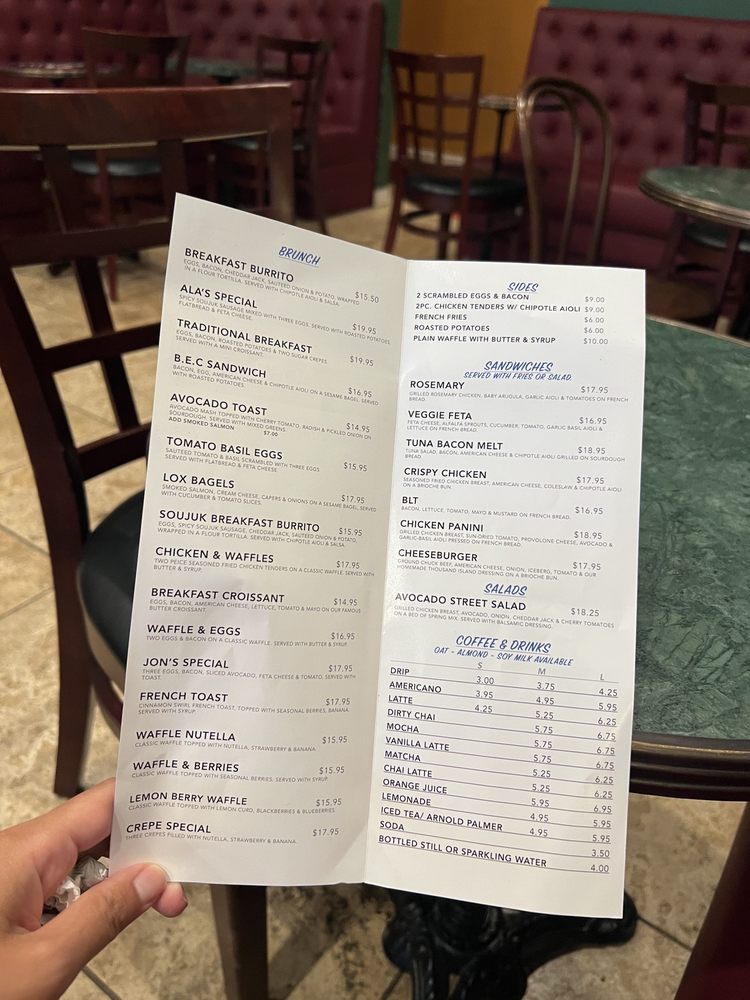 BRUNCH
BREAKFAST BURRITO
EGGS, BACON, CHEDDAR JACK, SAUTEED ONION & POTATO, WRAPPED
IN A FLOUR TORTILLA. SERVED WITH CHIPOTLE AIOLI & SALSA. $15.50
ALA'S SPECIAL
SPICY SOUJUK SAUSAGE MIXED WITH THREE EGGS. SERVED WITH ROASTED POTATOES,
FLATBREAD & FETA CHEESE. $19.95
TRADITIONAL BREAKFAST
EGGS, BACON, ROASTED POTATOES & TWO SUGAR CREPES.
SERVED WITH A MINI CROISSANT. $19.95
B.E.C SANDWICH
BACON, EGG, AMERICAN CHEESE & CHIPOTLE AIOLI ON A SESAME BAGEL. SERVED
WITH ROASTED POTATOES. $16.95
AVOCADO TOAST
AVOCADO MASH TOPPED WITH CHERRY TOMATO, RADISH & PICKLED ONION ON
SOURDOUGH. SERVED WITH MIXED GREENS. $14.95
ADD SMOKED SALMON $7.00
TOMATO BASIL EGGS
SAUTEED TOMATO & BASIL SCRAMBLED WITH THREE EGGS
SERVED WITH FLATBREAD & FETA CHEESE $15.95
LOX BAGELS
SMOKED SALMON, CREAM CHEESE, CAPERS & ONIONS ON A SESAME BAGEL, SERVED
WITH CUCUMBER & TOMATO SLICES. $17.95
SOUJUK BREAKFAST BURRITO $15.95
EGGS, SPICY SOUJUK SAUSAGE, CHEDDAR JACK, SAUTEED ONION & POTATO,
WRAPPED IN A FLOUR TORTILLA. SERVED WITH CHIPOTLE AIOLI & SALSA.
CHICKEN & WAFFLES $17.95
TWO PEICE SEASONED FRIED CHICKEN TENDERS ON A CLASSIC WAFFLE. SERVED WITH
BUTTER & SYRUP.
BREAKFAST CROISSANT $14.95
EGGS, BACON, AMERICAN CHEESE, LETTUCE, TOMATO & MAYO ON OUR FAMOUS
BUTTER CROISSANT.
WAFFLE & EGGS $16.95
TWO EGGS & BACON ON A CLASSIC WAFFLE. SERVED WITH BUTTER & SYRUP.
JON'S SPECIAL $17.95
THREE EGGS, BACON, SLICED AVOCADO, FETA CHEESE & TOMATO, SERVED WITH
TOAST.
FRENCH TOAST $17.95
CINNAMON SWIRL FRENCH TOAST, TOPPED WITH SEASONAL BERRIES, BANANA.
SERVED WITH SYRUP.
WAFFLE NUTELLA $15.95
CLASSIC WAFFLE TOPPED WITH NUTELLA, STRAWBERRY & BANANA.
WAFFLE & BERRIES $15.95
CLASSIC WAFFLE TOPPED WITH SEASONAL BERRIES. SERVED WITH SYRUP.
LEMON BERRY WAFFLE $15.95
CLASSIC WAFFLE TOPPED WITH LEMON CURD, BLACKBERRIES & BLUEBERRIES.
CREPE SPECIAL $17.95
THREE CREPES FILLED WITH NUTELLA, STRAWBERRY & BANANA.
SIDES
2 SCRAMBLED EGGS & BACON $9.00
2PC. CHICKEN TENDERS W/ CHIPOTLE AIOLI $9.00
FRENCH FRIES $6.00
ROASTED POTATOES $6.00
PLAIN WAFFLE WITH BUTTER & SYRUP $10.00
SANDWICHES
SERVED WITH FRIES OR SALAD.
ROSEMARY $17.95
GRILLED ROSEMARY CHICKEN, BABY ARUGULA, GARLIC AIOLI & TOMATOES ON FRENCH
BREAD.
VEGGIE FETA $16.95
FETA CHEESE, ALFALFA SPROUTS, CUCUMBER, TOMATO, GARLIC BASIL AIOLI &
LETTUCE ON FRENCH BREAD.
TUNA BACON MELT $18.95
TUNA SALAD, BACON, AMERICAN CHEESE & CHIPOTLE AIOLI GRILLED ON SOURDOUGH
BREAD
CRISPY CHICKEN $17.95
SEASONED FRIED CHICKEN BREAST, AMERICAN CHEESE, COLESLAW & CHIPOTLE AIOLI
ON A BRIOCHE BUN.
BLT $16.95
BACON, LETTUCE, TOMATO, MAYO & MUSTARD ON FRENCH BREAD.
CHICKEN PANINI $18.95
GRILLED CHICKEN BREAST, SUN-DRIED TOMATO, PROVOLONE CHEESE, AVOCADO &
GARLIC-BASIL AIOLI PRESSED ON FRENCH BREAD.
CHEESEBURGER $17.95
GROUND CHUCK BEEF, AMERICAN CHEESE, ONION, ICEBERG, TOMATO & OUR
HOMEMADE THOUSAND ISLAND DRESSING ON A BRIOCHE BUN.
SALADS
AVOCADO STREET SALAD $18.25
GRILLED CHICKEN BREAST, AVOCADO, ONION, CHEDDAR JACK & CHERRY TOMATOES
ON A BED OF SPRING MIX. SERVED WITH BALSAMIC DRESSING.
COFFEE & DRINKS
OAT - ALMOND - SOY MILK AVAILABLE
S M L
DRIP 3.00 3.75 4.25
AMERICANO 3.95 4.95 5.95
LATTE 4.25 5.25 6.25
DIRTY CHAI 5.75 6.75
MOCHA 5.75 6.75
VANILLA LATTE 5.75 6.75
MATCHA 5.25 6.25
CHAI LATTE 5.25 6.25
ORANGE JUICE 5.95 6.95
LEMONADE 4.95 5.95
ICED TEA/ ARNOLD PALMER 4.95 5.95
SODA 3.50
BOTTLED STILL OR SPARKLING WATER 4.00